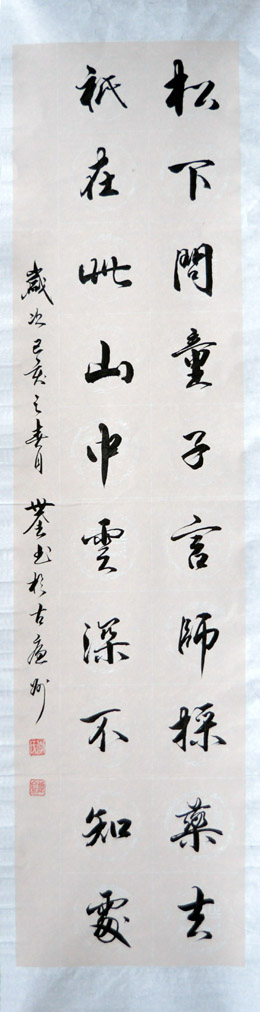 松下問童子言師採藥去
祇在此山中雲深不知處
歲次己亥之春月 書於古廬州